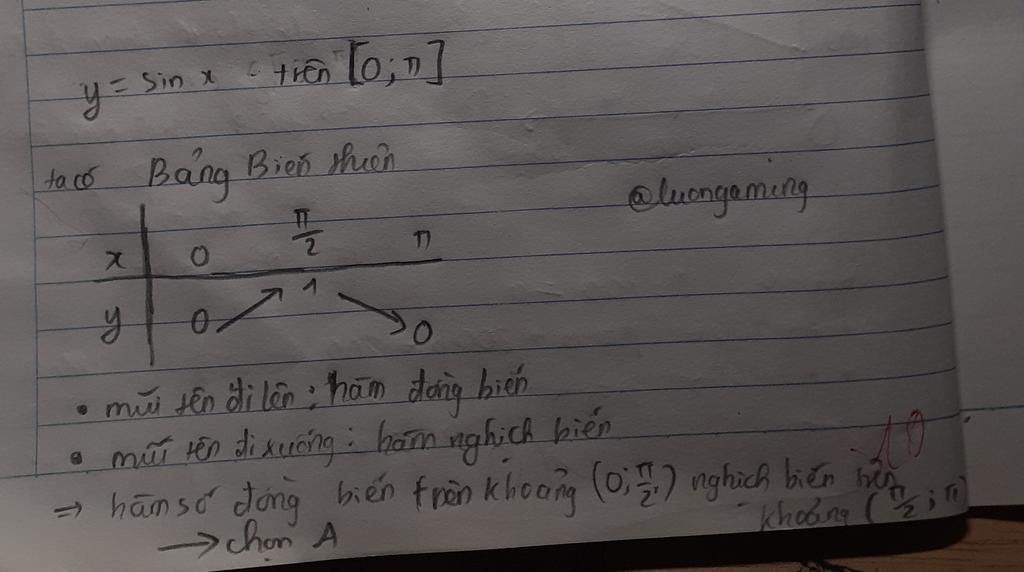 y = sin x trên [0; π]
ta có Bảng Biến thiên
@luongaming
x 0 π/2 π
y 0 ↗ 1 ↘ 0
• mũi tên đi lên: hàm đồng biến
• mũi tên đi xuống: hàm nghịch biến
10
⇒ hàm số đồng biến trên khoảng (0; π/2) nghịch biến trên
khoảng (π/2; π)
→ chọn A